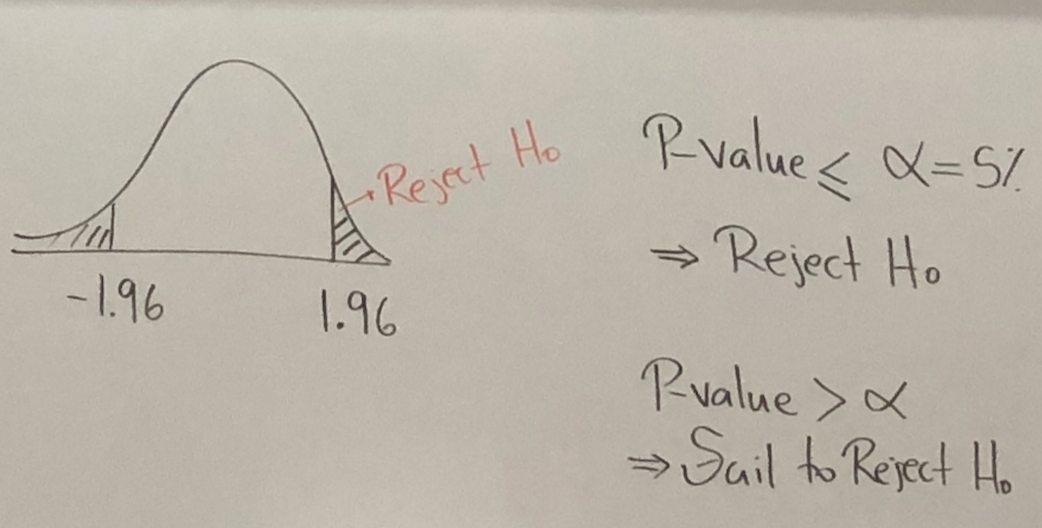 Reject H₀
-1.96
1.96
P-value ≤ α = 5%
⇒ Reject H₀
P-value > α
⇒ Sail to Reject H₀